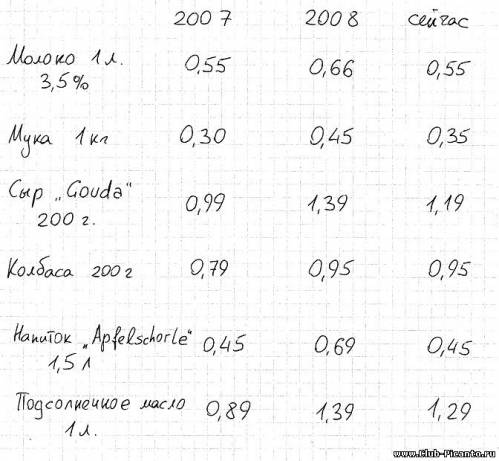 2007 2008 сейчас
Молоко 1 л. 0,55 0,66 0,55
3,5%
Мука 1 кг 0,30 0,45 0,35
Сыр „Gouda" 0,99 1,39 1,19
200 г.
Колбаса 200 г 0,79 0,95 0,95
Напиток „Apfelschorle" 0,45 0,69 0,45
1,5 л
Подсолнечное масло 0,89 1,39 1,29
1 л.
www.Club-Picanto.ru